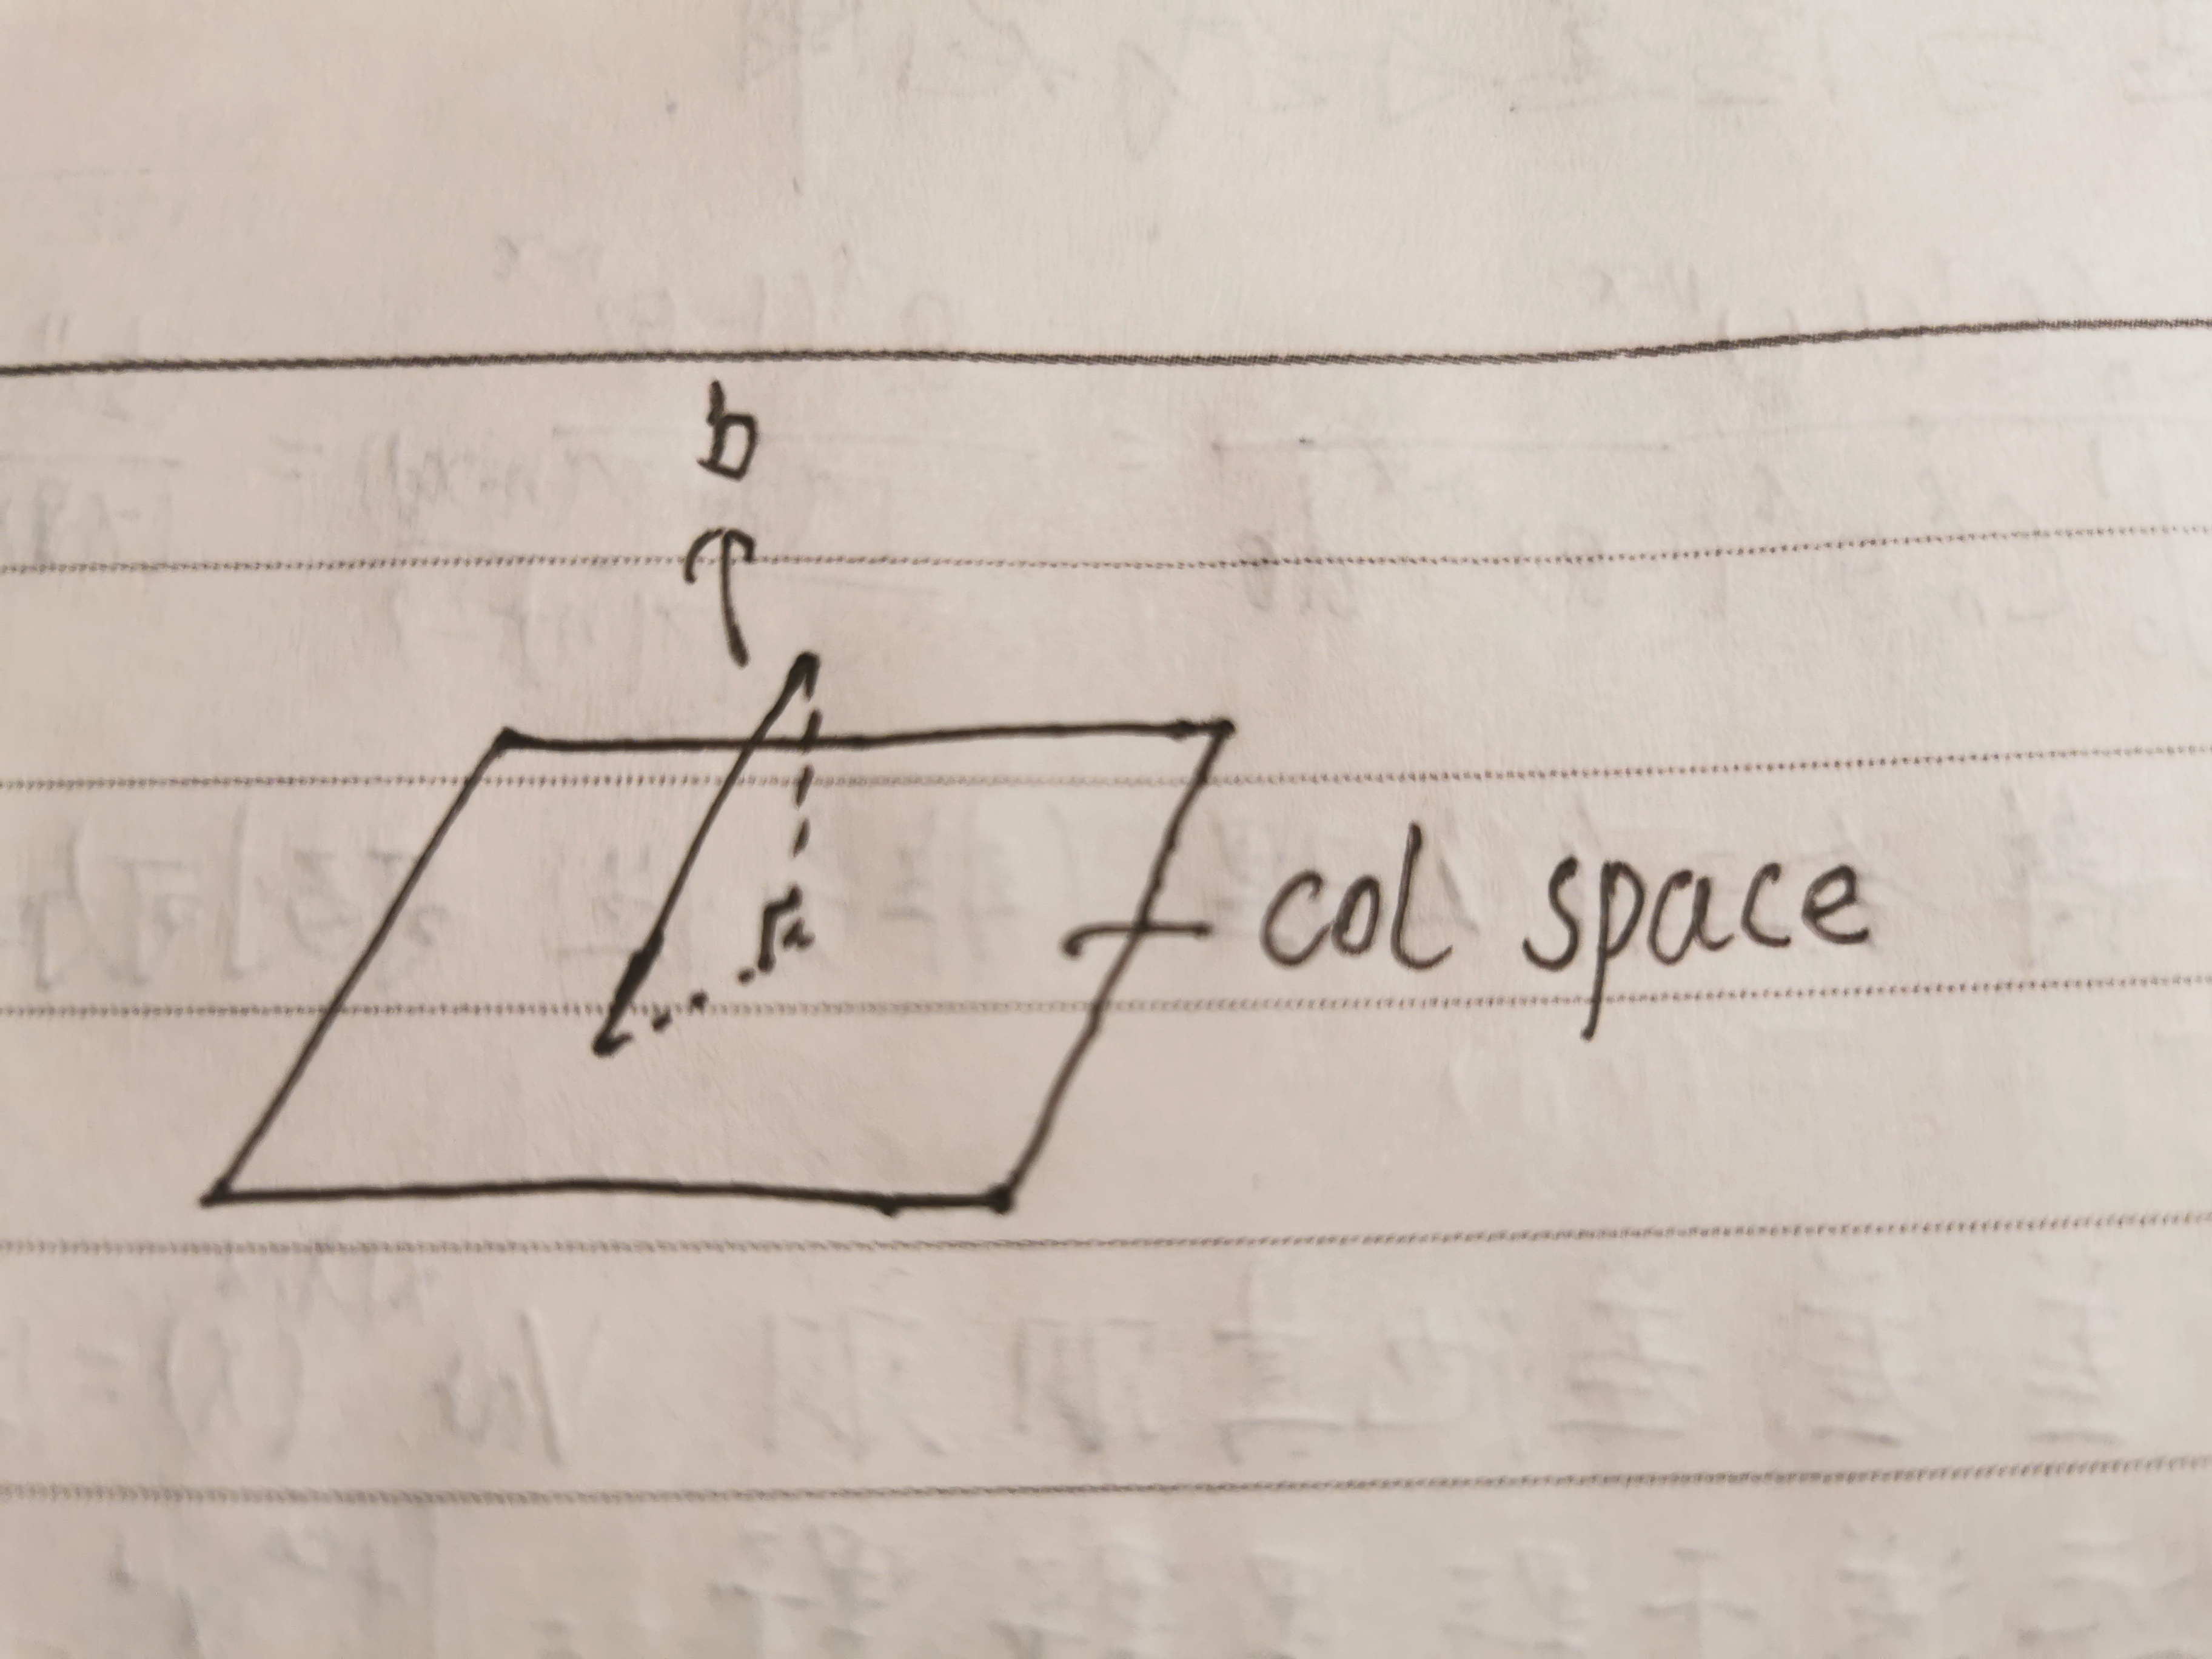 b
col space